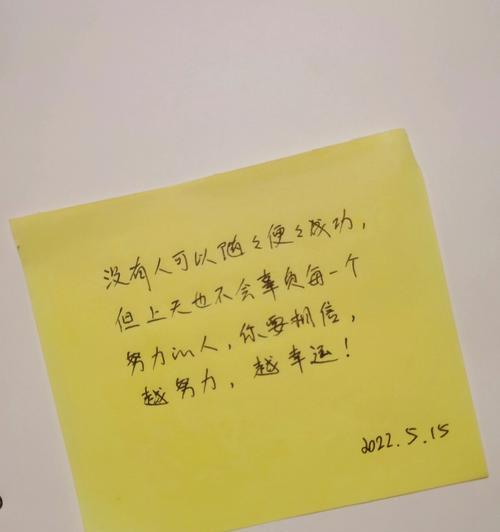 没有人可以随々便々成功，
但上天也不会辜负每一个
努力的人，你要相信，
越努力，越幸运！
2022.5.15